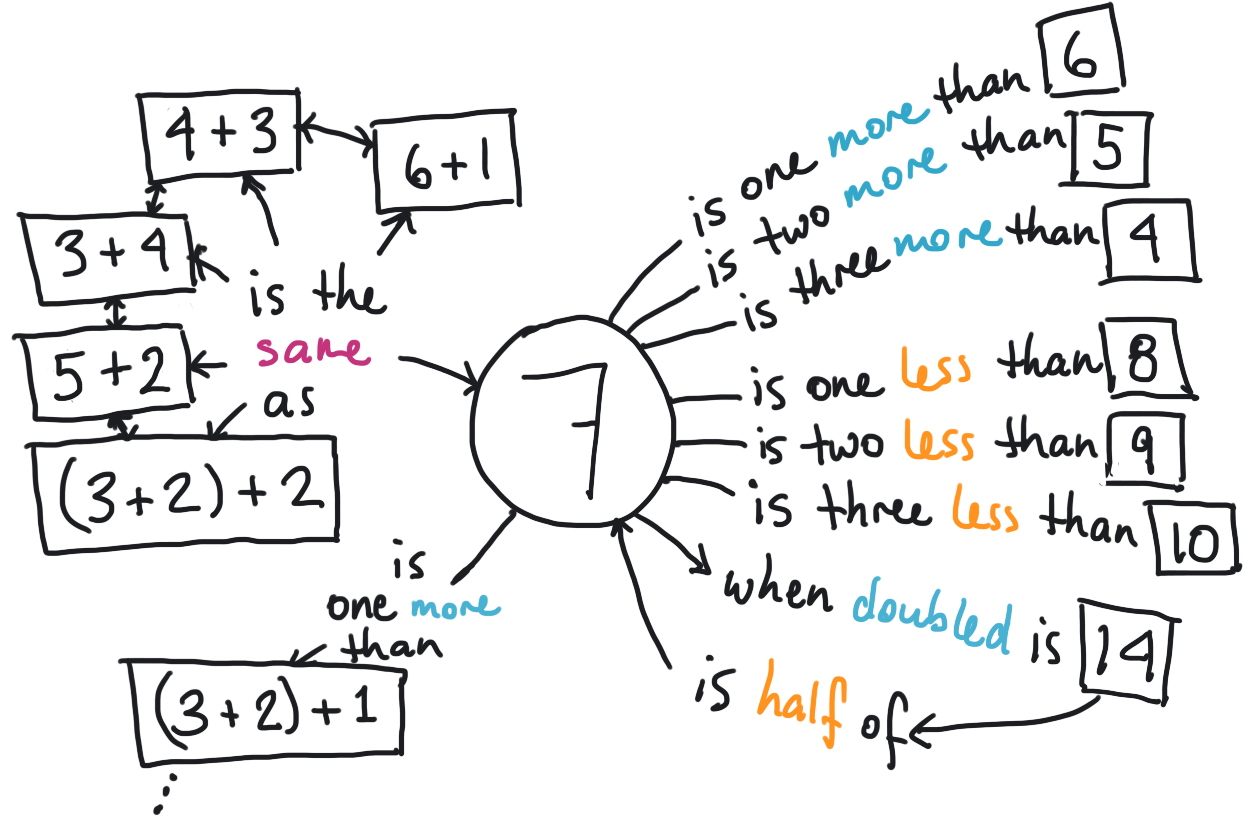 4 + 3
6 + 1
3 + 4
5 + 2
(3 + 2) + 2
is the
same
as
7
is one more than 6
is two more than 5
is three more than 4
is one less than 8
is two less than 9
is three less than 10
when doubled is 14
is half of
is
one more
than
(3 + 2) + 1